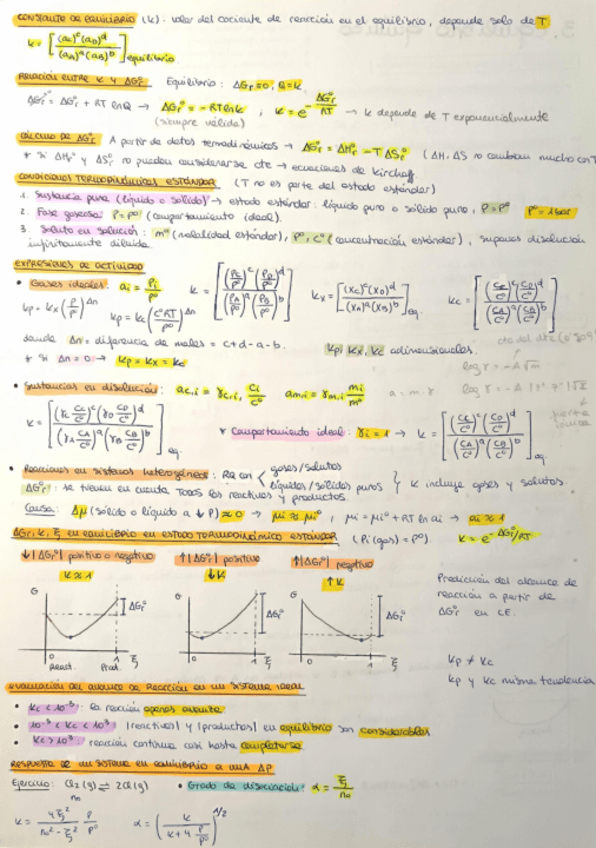 CONSTANTE DE EQUILIBRIO (K): valor del cociente de reacción en el equilibrio, depende solo de T
K = [(a_C)^c (a_D)^d / (a_A)^a (a_B)^b] equilibrio
RELACIÓN ENTRE K Y ΔGr° Equilibrio: ΔGr = 0, Q = K
ΔGr = ΔGr° + RT ln Q → ΔGr° = -RT ln K, K = e^-ΔGr°/RT → K depende de T exponencialmente
(siempre válida)
CÁLCULO DE ΔGr° A partir de datos termodinámicos → ΔGr° = ΔHr° - TΔSr° (ΔH, ΔS no cambian mucho con T
* Si ΔHr° y ΔSr° no pueden considerarse cte → ecuaciones de Kirchoff
CONDICIONES TERMODINÁMICAS ESTÁNDAR (T no es parte del estado estándar)
1. Sustancia pura (líquido o sólido) → estado estándar: líquido puro o sólido puro, P = P° P° = 1 bar
2. Fase gaseosa: P = P° (comportamiento ideal).
3. Soluto en solución: m° (molalidad estándar), P°, c° (concentración estándar), supones disolución
infinitamente diluida.
EXPRESIONES DE ACTIVIDAD
• Gases ideales: ai = Pi/P° K = [(P_C/P°)^c (P_D/P°)^d / (P_A/P°)^a (P_B/P°)^b] Kx = [(X_C)^c (X_D)^d / (X_A)^a (X_B)^b] eq. Kc = [(C_C/c°)^c (C_D/c°)^d / (C_A/c°)^a (C_B/c°)^b]
Kp = Kx (P/P°)^Δn Kp = Kc (c°RT/P°)^Δn
donde Δn = diferencia de moles = c+d-a-b. Kp, Kx, Kc adimensionales.
* Si Δn = 0 → Kp = Kx = Kc
log γ = -A √m
• Sustancias en disolución: ac,i = γc,i Ci/c° am,i = γm,i mi/m° a = m · γ
K = [(γ_C C_C/c°)^c (γ_D C_D/c°)^d / (γ_A C_A/c°)^a (γ_B C_B/c°)^b] eq. * Comportamiento ideal: γi = 1 → K = [(C_C/c°)^c (C_D/c°)^d / (C_A/c°)^a (C_B/c°)^b] eq
fuerza
iónica
• Reacciones en sistemas heterogéneos: RQ con < gases/solutos
líquidos/sólidos puros } K incluye gases y solutos.
ΔGr°: se tienen en cuenta todos los reactivos y productos.
Causa: Δμ (sólido o líquido a ↓P) ≈ 0 → μi ≈ μi°, μi = μi° + RT ln ai → ai ≈ 1
ΔGr, K, ξ en equilibrio en estado termodinámico estándar (Pi (gas) = P°). K = e^-ΔGr°/RT
↓|ΔGr°| positivo o negativo ↑|ΔGr°| positivo ↑|ΔGr°| negativo
K ≈ 1 ↓K ↑K
G ΔGr° G ΔGr° G ΔGr°
0 1 ξ 0 1 ξ 0 1 ξ
React. Prod.
Predicción del alcance de
reacción a partir de
ΔGr° en CE.
Kp ≠ Kc
Kp y Kc misma tendencia
EVALUACIÓN DEL AVANCE DE REACCIÓN EN UN SISTEMA IDEAL
• Kc < 10^-3: la reacción apenas avanza
• 10^-3 < Kc < 10^3: |reactivos| y |productos| en equilibrio son considerables.
• Kc > 10^3: reacción continua casi hasta completarse
RESPUESTA DE UN SISTEMA EN EQUILIBRIO A UNA ΔP
Ejercicio: Cl2 (g) ⇌ 2Cl (g) • Grado de disociación: α = ξ/n0
n0
K = 4ξ²/(n0² - ξ²) P/P° α = (K / (K + 4 P/P°))^1/2